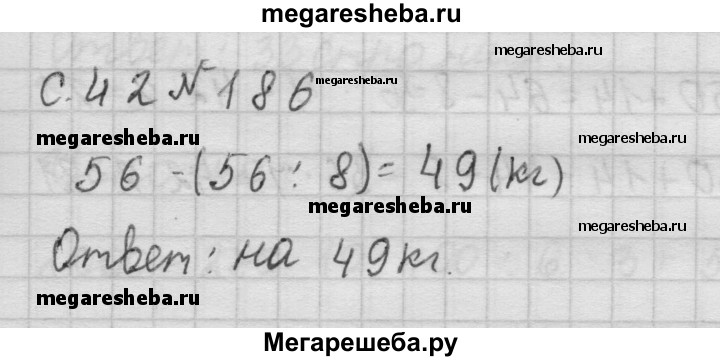 megaresheba.ru
megaresheba.ru
С. 42 № 186
megaresheba.ru
megaresheba.ru
56 - (56 : 8) = 49 (кг)
megaresheba.ru
megaresheba.ru
Ответ: на 49 кг.
megaresheba.ru
megaresheba.ru
Мегарешеба.ру